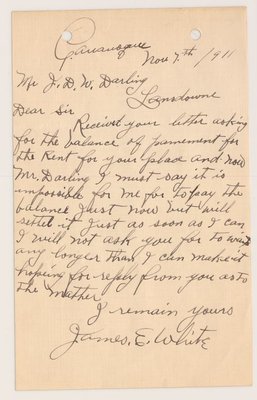 Gananoque
Nov 7th /1911
Mr J. D. W. Darling
Lansdowne
Dear Sir
Received your letter asking
for the balance of payement for
the Rent for your and now
Mr. Darling I must say it is
impossible for me for to pay the
balance Just now but will
settel it Just as soon as I can
I will not ask you for to wait
any longer than I can make it
hoping for reply from you as to
the mather
I remain yours
James. E. White